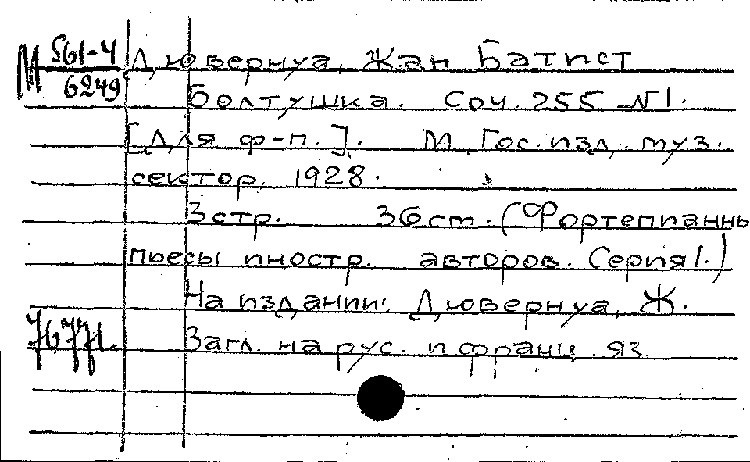 М 561-4
6249
Дювернуа, Жан Батист
Болтушка. Соч. 255 №1.
[Для ф-п.]. М., Гос. изд., муз.
сектор, 1928.
3 стр. 36 см. (Фортепианны
пьесы иностр. авторов. Серия 1.)
На издании: Дювернуа, Ж.
76771.
Загл. на рус. и франц. яз